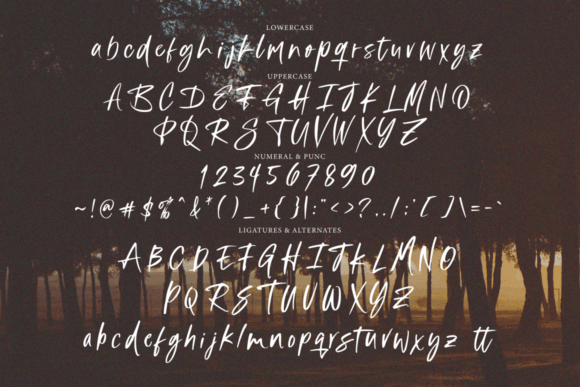 LOWERCASE
abcdefghijklmnopqrstuvwxyz
UPPERCASE
ABCDEFGHIJKLMNO
PQRSTUVWXYZ
NUMERAL & PUNC
1234567890
~!@#$%^&*()_+{}|:"<>?../;'[]\=-`
LIGATURES & ALTERNATES
ABCDEFGHIJKLMNO
PQRSTUVWXYZ
abcdefghijklmnopqrstuvwxyz tt